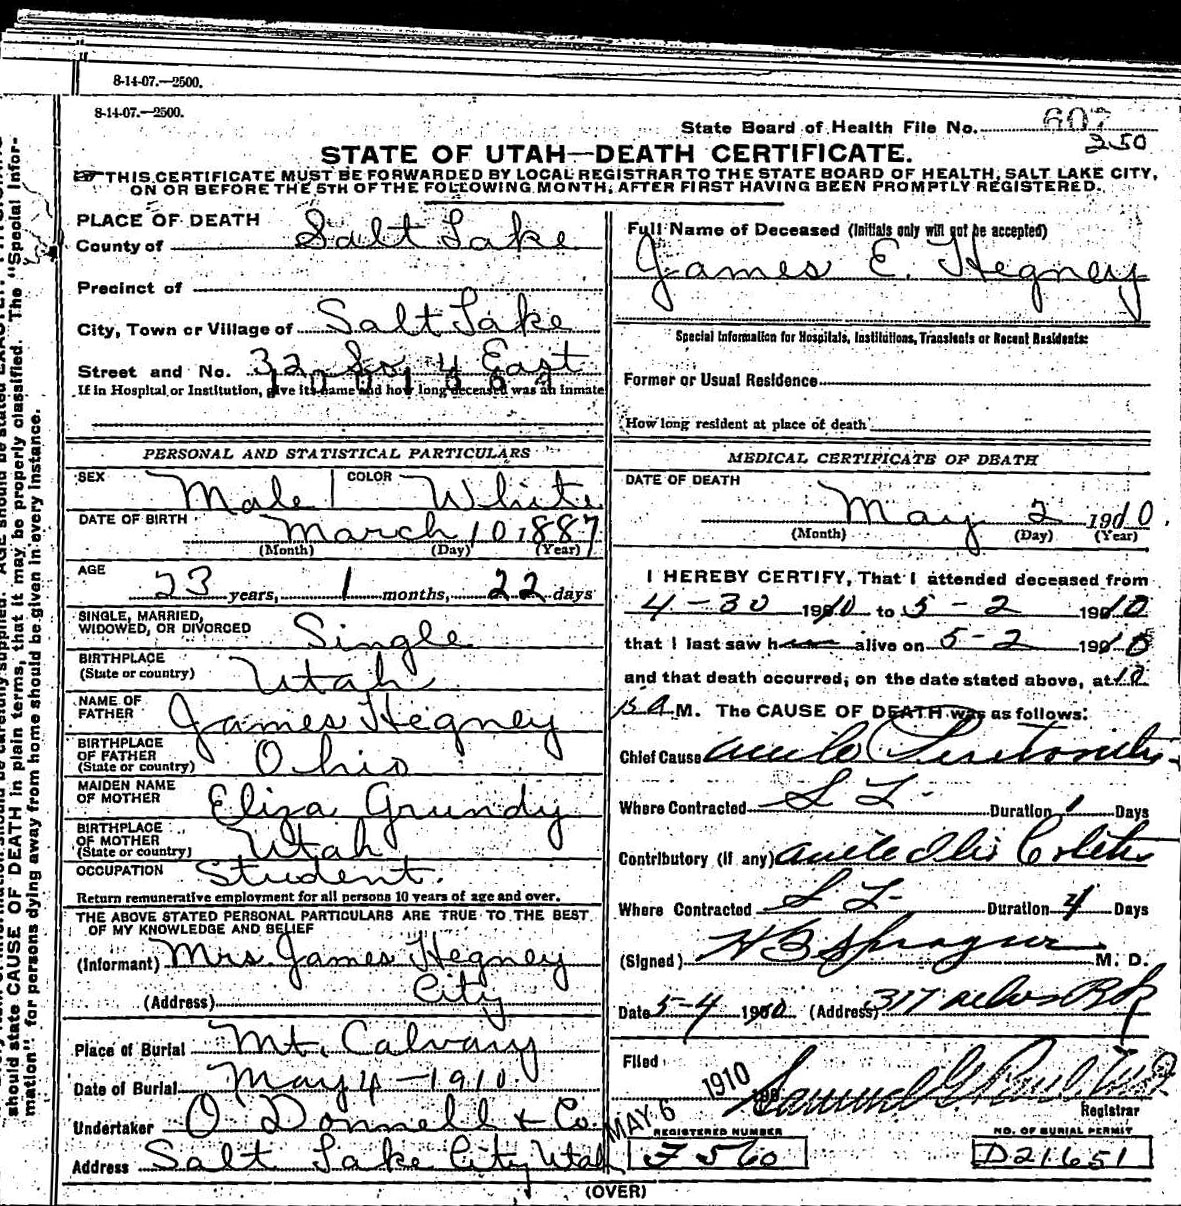 8-14-07.—2500.
8-14-07.—2500.
State Board of Health File No. 607
250
STATE OF UTAH—DEATH CERTIFICATE.
THIS CERTIFICATE MUST BE FORWARDED BY LOCAL REGISTRAR TO THE STATE BOARD OF HEALTH, SALT LAKE CITY,
ON OR BEFORE THE 5TH OF THE FOLLOWING MONTH, AFTER FIRST HAVING BEEN PROMPTLY REGISTERED.
PLACE OF DEATH
County of Salt Lake
Precinct of
City, Town or Village of Salt Lake
Street and No. 32 So 4 East
If in Hospital or Institution, give its name and how long deceased was an inmate
PERSONAL AND STATISTICAL PARTICULARS
SEX Male COLOR White
DATE OF BIRTH March 10 1887
(Month) (Day) (Year)
AGE
23 years, 1 months, 22 days
SINGLE, MARRIED,
WIDOWED, OR DIVORCED Single
BIRTHPLACE
(State or country) Utah
NAME OF
FATHER James Hegney
BIRTHPLACE
OF FATHER
(State or country) Ohio
MAIDEN NAME
OF MOTHER Eliza Grundy
BIRTHPLACE
OF MOTHER
(State or country) Utah
OCCUPATION Student.
Return remunerative employment for all persons 10 years of age and over.
THE ABOVE STATED PERSONAL PARTICULARS ARE TRUE TO THE BEST
OF MY KNOWLEDGE AND BELIEF
(Informant) Mrs. James Hegney
(Address) City
Place of Burial Mt. Calvary
Date of Burial May 4 - 1910.
Undertaker O'Donnell & Co.
Address Salt Lake City Utah
Full Name of Deceased (Initials only will not be accepted)
James E. Hegney
Special Information for Hospitals, Institutions, Transients or Recent Residents:
Former or Usual Residence
How long resident at place of death
MEDICAL CERTIFICATE OF DEATH
DATE OF DEATH
May 2 1910.
(Month) (Day) (Year)
I HEREBY CERTIFY, That I attended deceased from
4-30 1910 to 5-2 1910
that I last saw h alive on 5-2 1910
and that death occurred, on the date stated above, at 10
15 A.M. The CAUSE OF DEATH was as follows:
Chief Cause acute Peritonitis
Where Contracted S L Duration 1 Days
Contributory (if any) acute Ileo Colitis
Where Contracted S L Duration 4 Days
(Signed) H B Sprague M. D.
Date 5-4 1910 (Address) 317
Filed
MAY 6 1910 190 Samuel G. Paul
Registrar
REGISTERED NUMBER
F 560
NO. OF BURIAL PERMIT
D21651
(OVER)
should state CAUSE OF DEATH in plain terms, that it may be properly classified. The "Special Infor-
mation" for persons dying away from home should be given in every instance.